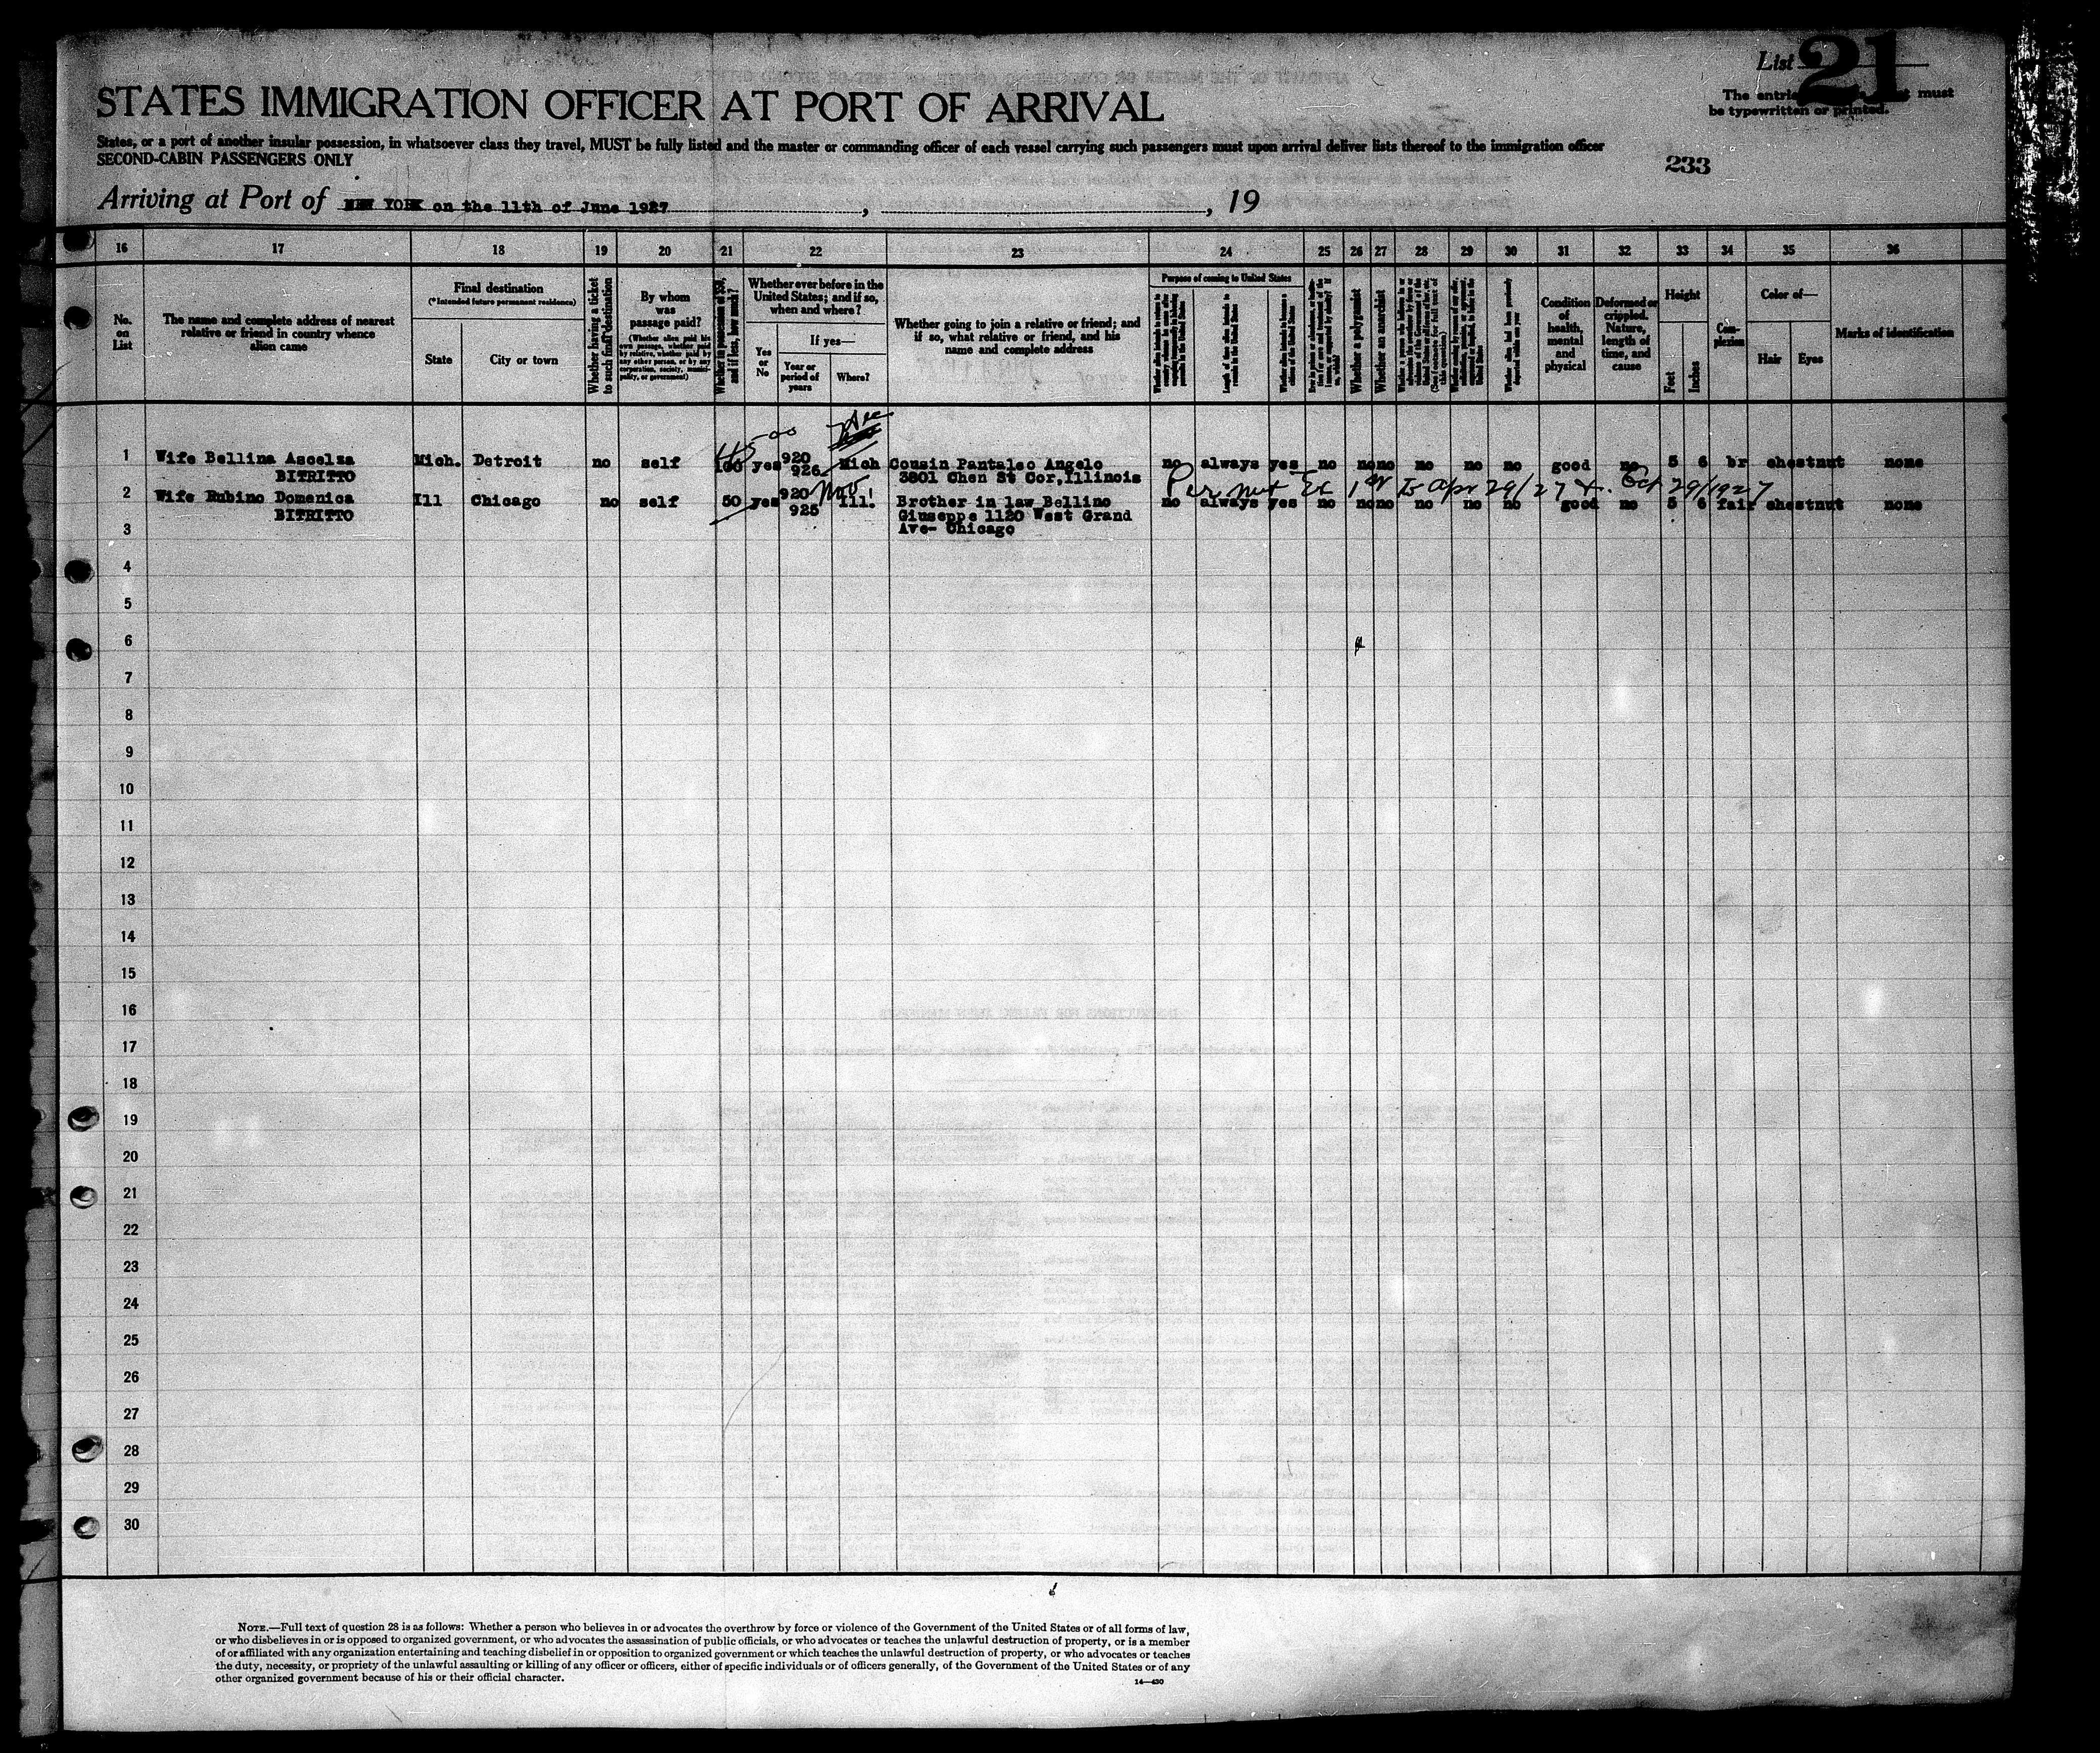 List 21
STATES IMMIGRATION OFFICER AT PORT OF ARRIVAL
The entries must
be typewritten or printed.
States, or a port of another insular possession, in whatsoever class they travel, MUST be fully listed and the master or commanding officer of each vessel carrying such passengers must upon arrival deliver lists thereof to the immigration officer
SECOND-CABIN PASSENGERS ONLY
233
Arriving at Port of NEW YORK on the 11th of June 1927, , 19
16 17 18 19 20 21 22 23 24 25 26 27 28 29 30 31 32 33 34 35 36
No. on List
The name and complete address of nearest relative or friend in country whence alien came
Final destination
(*Intended future permanent residence)
State
City or town
Whether having a ticket to such final destination
By whom was passage paid?
(Whether alien paid his own passage, whether paid by relative, whether paid by any other person, or by any corporation, society, municipality, or government)
Whether in possession of $50, and if less, how much?
Whether ever before in the United States; and if so, when and where?
Yes or No
If yes—
Year or period of years
Where?
Whether going to join a relative or friend; and if so, what relative or friend, and his name and complete address
Purpose of coming to United States
Length of time alien intends to remain in the United States
Whether a polygamist
Whether an anarchist
Condition of health, mental and physical
Deformed or crippled. Nature, length of time, and cause
Height
Feet
Inches
Complexion
Color of—
Hair
Eyes
Marks of identification
1 Wife Bellina Ascelza Mich. Detroit no self 100 yes 920 Mich Cousin Pantaleo Angelo no always yes no no no no no no good no 5 6 br chestnut none
BITRITTO 926 3801 Chen St Cor, Illinois
Permit Ex 1st Is Apr 29/27 Oct 29/1927
2 Wife Rubino Domenica Ill Chicago no self 50 yes 920 Nov Ill. Brother in law Bellino no always yes no no no no no no good no 5 6 fair chestnut none
BITRITTO 925 Giuseppe 1120 West Grand
3 Ave- Chicago
4
5
6
7
8
9
10
11
12
13
14
15
16
17
18
19
20
21
22
23
24
25
26
27
28
29
30
NOTE.—Full text of question 28 is as follows: Whether a person who believes in or advocates the overthrow by force or violence of the Government of the United States or of all forms of law,
or who disbelieves in or is opposed to organized government, or who advocates the assassination of public officials, or who advocates or teaches the unlawful destruction of property, or is a member
of or affiliated with any organization entertaining and teaching disbelief in or opposition to organized government or which teaches the unlawful destruction of property, or who advocates or teaches
the duty, necessity, or propriety of the unlawful assaulting or killing of any officer or officers, either of specific individuals or of officers generally, of the Government of the United States or of any
other organized government because of his or their official character.
14—430